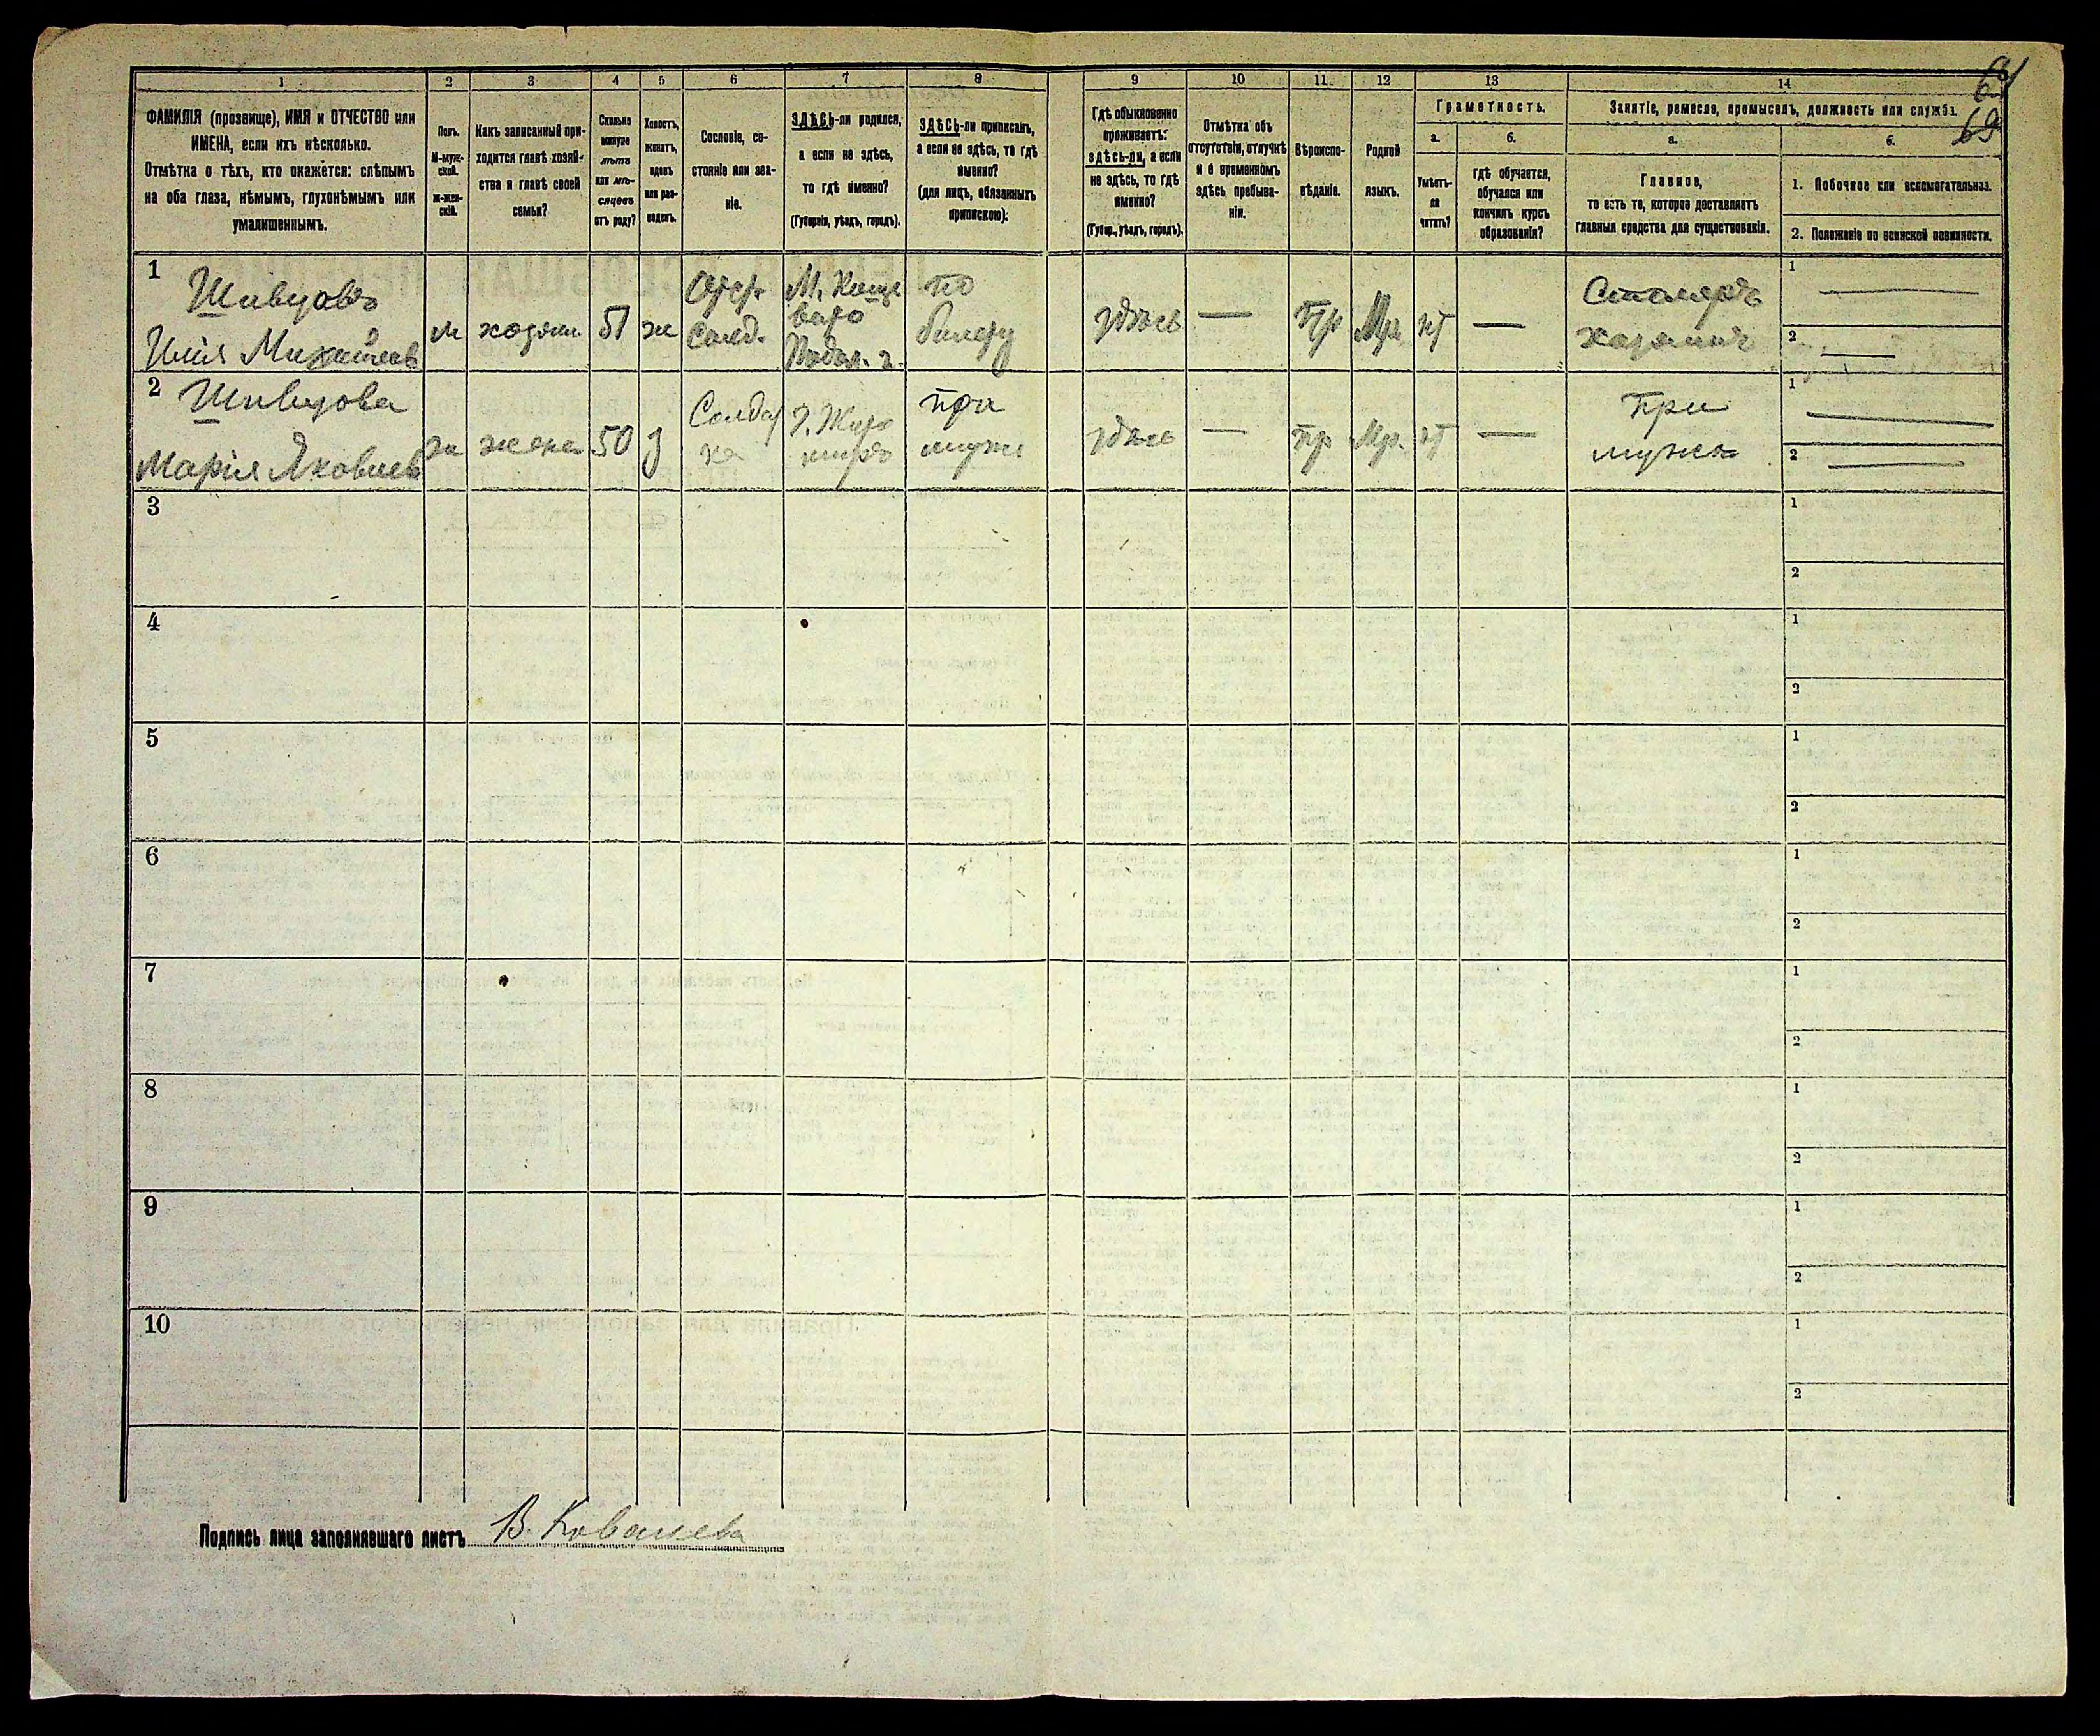 1 2 3 4 5 6 7 8 9 10 11 12 13 14
69
ФАМИЛІЯ (прозвище), ИМЯ и ОТЧЕСТВО или
ИМЕНА, если ихъ нѣсколько.
Отмѣтка о тѣхъ, кто окажется: слѣпымъ
на оба глаза, нѣмымъ, глухонѣмымъ или
умалишеннымъ.
Полъ.
М-муж-
ской.
Ж-жен-
скій.
Какъ записанный при-
ходится главѣ хозяй-
ства и главѣ своей
семьи?
Сколько
минуло
лѣтъ
или мѣ-
сяцевъ
отъ роду?
Холостъ,
женатъ,
вдовъ
или раз-
веденъ.
Сословіе, со-
стояніе или зва-
ніе.
ЗДѢСЬ-ли родился,
а если не здѣсь,
то гдѣ именно?
(Губернія, уѣздъ, городъ).
ЗДѢСЬ-ли приписанъ,
а если не здѣсь, то гдѣ
именно?
(для лицъ, обязанныхъ
припискою).
Гдѣ обыкновенно
проживаетъ:
здѣсь-ли, а если
не здѣсь, то гдѣ
именно?
(Губер., уѣздъ, городъ).
Отмѣтка объ
отсутствіи, отлучкѣ
и о временномъ
здѣсь пребыва-
ніи.
Вѣроиспо-
вѣданіе.
Родной
языкъ.
Грамотность.
а.
Умѣетъ-
ли
читать?
б.
гдѣ обучается,
обучался или
кончилъ курсъ
образованія?
Занятіе, ремесло, промыселъ, должность или служба.
а.
Главное,
то есть то, которое доставляетъ
главныя средства для существованія.
б.
1. Побочное или вспомогательное.
2. Положеніе по воинской повинности.
1
Шивцовъ
Илія
м
51
ж
солд.
М.
по
билету
здѣсь
—
Пр
нт
—
Столяръ
хозяинъ
1 —
2 —
2
Шивцова
Марія Яковлев
ж
жена
50
з
Солдат
ка
при
муже
здѣсь
—
пр
нт
—
При
мужѣ
1 —
2 —
3
1
2
4
1
2
5
1
2
6
1
2
7
1
2
8
1
2
9
1
2
10
1
2
Подпись лица заполнявшаго листъ В. Ковалева